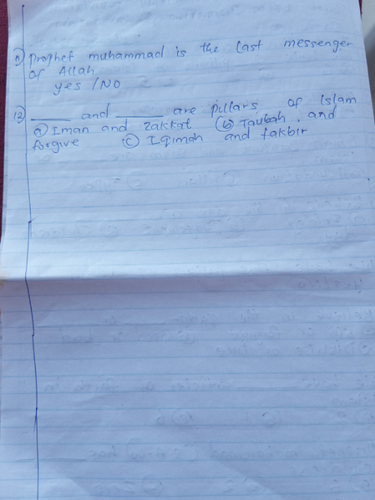 11) Prophet muhammad is the last messenger
of Allah
yes / NO
12) ______ and ______ are pillars of islam
(a) Iman and zakkat (b) Taubah and
forgive (c) Iqimah and takbir